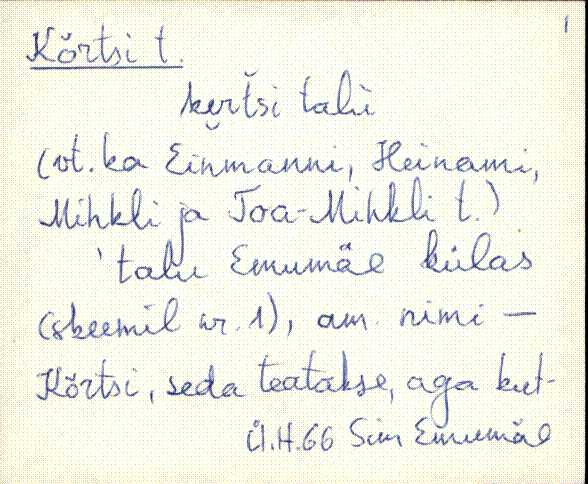 1
Kõrtsi t.
kertsi talu
(vt. ka Einmanni, Heinami,
Mihkli ja Toa-Mihkli t.)
' talu Emumäe külas
(skeemil nr. 1), am. nimi —
Kõrtsi, seda teatakse, aga kut-
Ü.H.66 Sim Emumäe